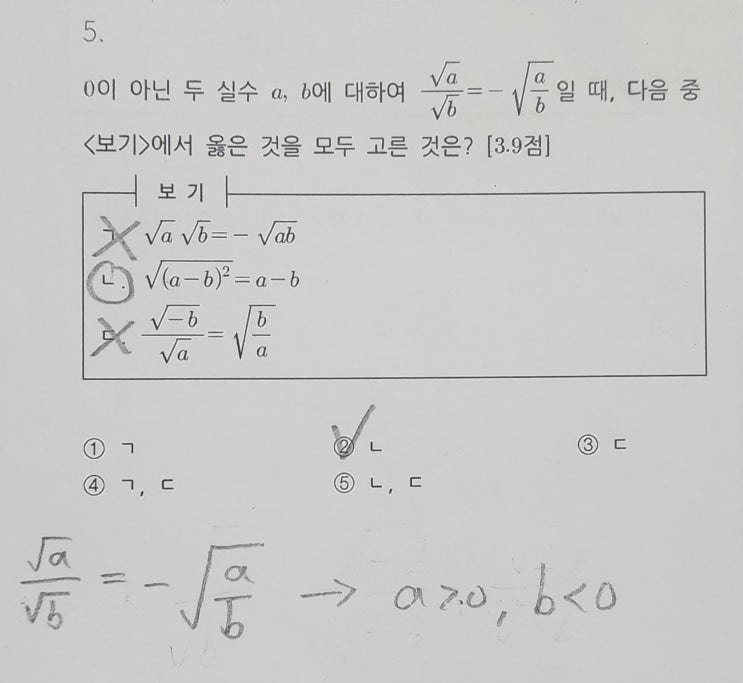 5.
0이 아닌 두 실수 a, b에 대하여 √a/√b=-√(a/b)일 때, 다음 중
<보기>에서 옳은 것을 모두 고른 것은? [3.9점]
보 기
ㄱ. √a √b=-√ab
ㄴ. √(a-b)²=a-b
ㄷ. √-b/√a=√(b/a)
① ㄱ ② ㄴ ③ ㄷ
④ ㄱ, ㄷ ⑤ ㄴ, ㄷ
√a/√b = -√(a/b) → a>0, b<0